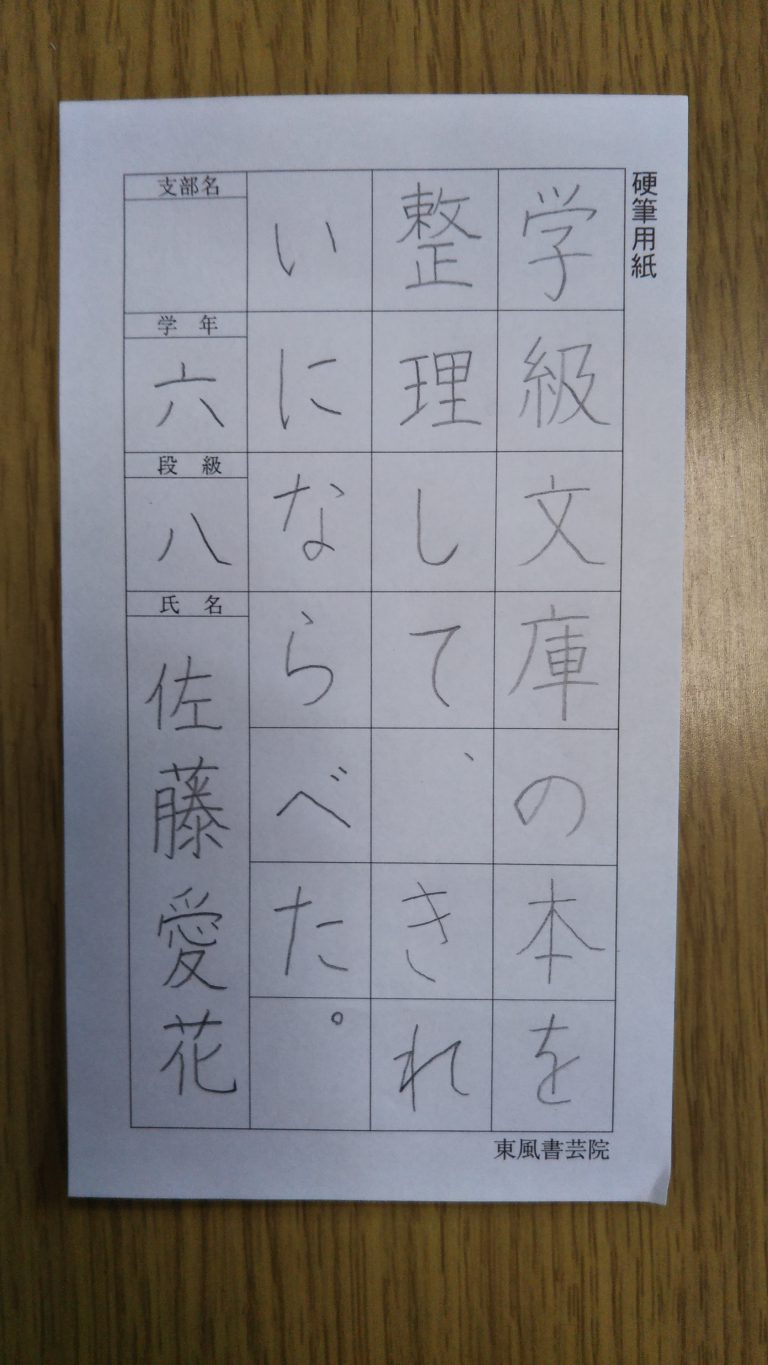 硬筆用紙
学級文庫の本を
整理して、きれ
いにならべた。
支部名
学年
六
段級
八
氏名
佐藤愛花
東風書芸院